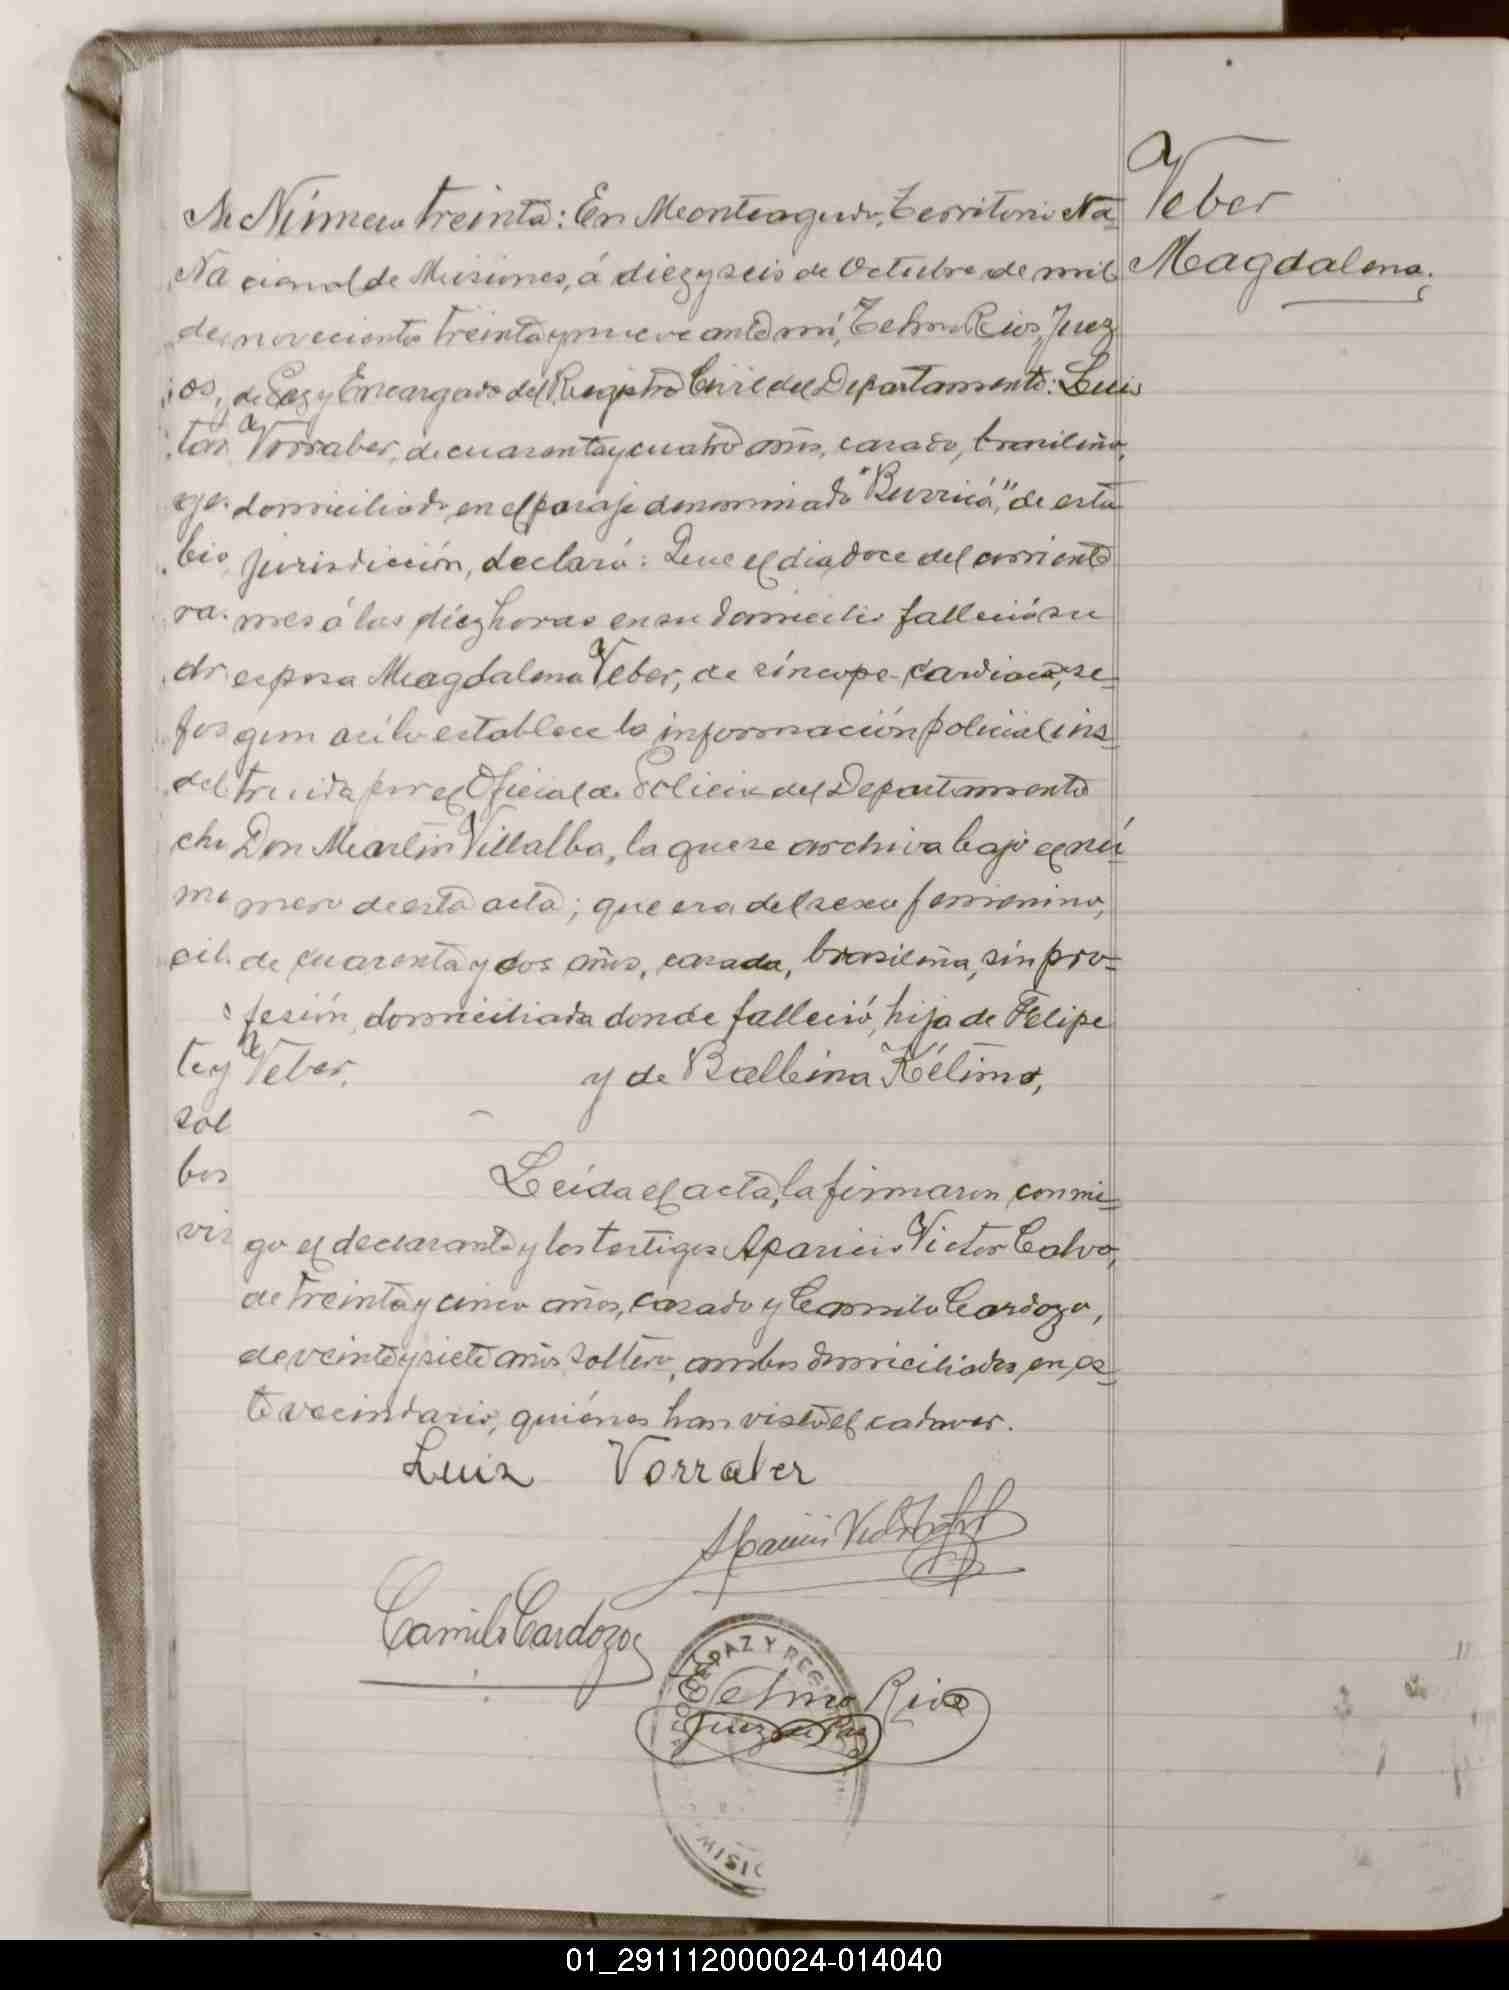 Veber
Magdalena.
Número treinta: En Monteagudo, Territorio Na=
cional de Misiones, á diez y seis de Octubre de mil
novecientos treinta y nueve ante mí, Telmo Rios, Juez
de Paz y Encargado del Registro Civil del Departamento: Luis
Vorraber, de cuarenta y cuatro años, casado, brasileño,
domiciliado en el paraje denominado "Burricá", de esta
jurisdicción, declaró: Que el dia doce del corriente
mes á las diez horas en su domicilio falleció su
esposa Magdalena Veber, de síncope cardiaca, se=
gun asi lo establece la información policial ins=
truida por el Oficial de Policia del Departamento
Don Martin Villalba, la que se archiva bajo el nú=
mero de esta acta; que era del sexo femenino,
de cuarenta y dos años, casada, brasileña, sin pro=
fesión, domiciliada donde falleció, hija de Felipe
Veber, y de Balbina
Leída el acta, la firmaron conmi=
go el declarante y los testigos Aparicio Victor Calvo,
de treinta y cinco años, casado y Camilo Cardozo,
de veinte y siete años, soltero, ambos domiciliados en es=
te vecindario, quiénes han visto el cadaver.
Luiz Vorraber
Camilo Cardozo
Telmo Rios
Juez de Paz
PAZ Y REG
01_291112000024-014040